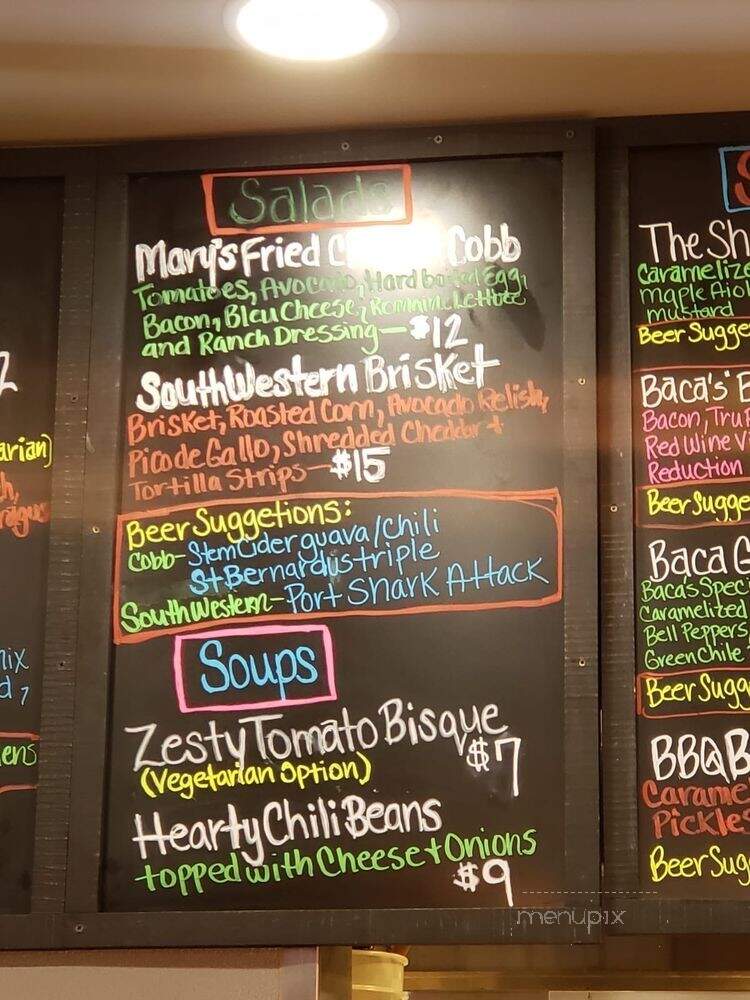 Salads
Mary's Fried Cobb
Tomatoes, Avocado, Hard boiled Egg,
Bacon, Bleu Cheese, Romaine Lettuce
and Ranch Dressing—$12
SouthWestern Brisket
Brisket, Roasted Corn, Avocado Relish,
Pico de Gallo, Shredded Cheddar +
Tortilla Strips—$15
Beer Suggetions:
Cobb- Stem Cider guava/chili
St Bernardus triple
SouthWestern- Port Shark Attack
Soups
Zesty Tomato Bisque
$7
(Vegetarian Option)
Hearty Chili Beans
topped with Cheese + Onions
$9
arian)
ix
d,
ens
The Sh
Carameliz
maple Aio
mustard
Beer Sugge
Baca's B
Bacon, Tru
Red Wine V
Reduction
Beer Sugge
Baca G
Baca's Spec
Caramelized
Bell Peppers
Green Chile
Beer Sugg
BBQ B
Carame
Pickles
Beer Sug
menupix